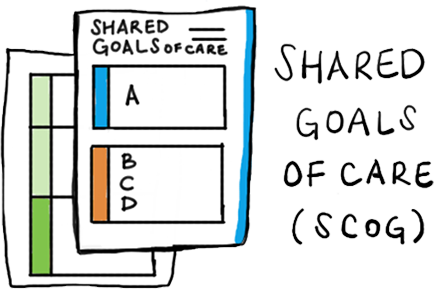 SHARED
GOALS OF CARE
A
B
C
D
SHARED
GOALS
OF CARE
(SCOG)